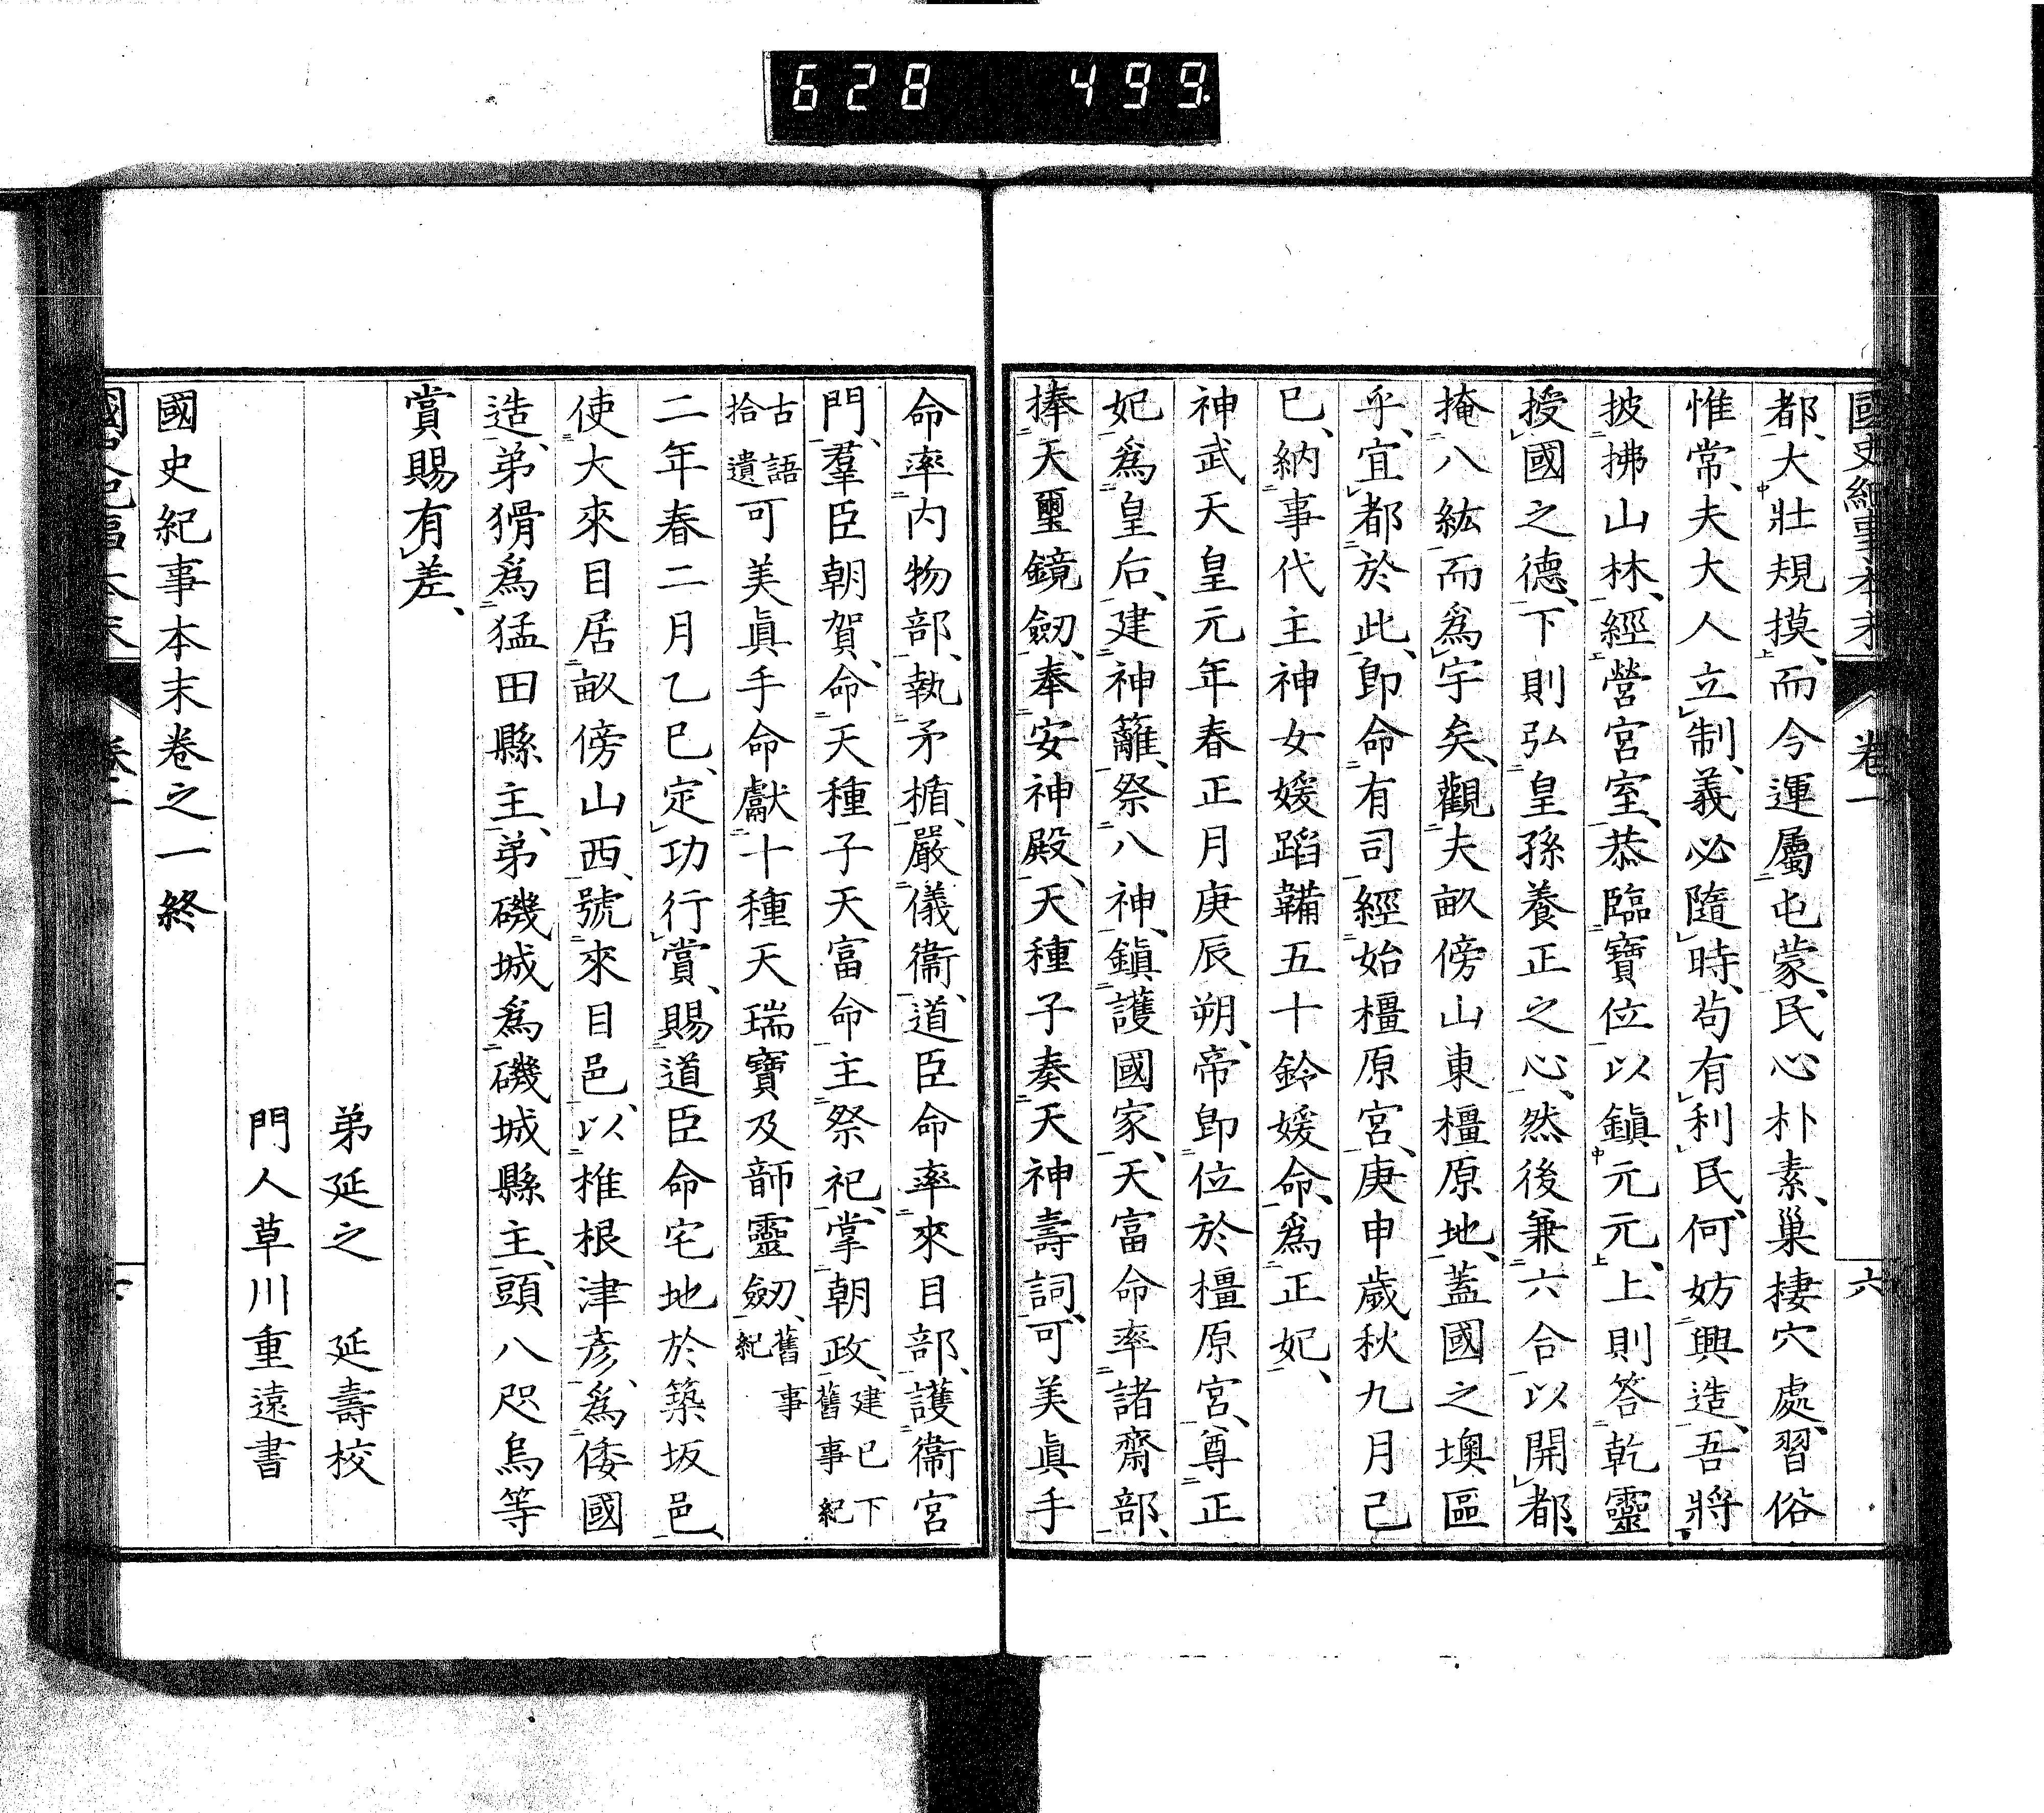 628 499.
國史紀事本末 卷一 六
都、大壯規摸、而今運屬屯蒙、民心朴素、巢棲穴處、習俗
惟常、夫大人立制、義必隨時、苟有利民、何妨興造、吾將
披拂山林、經營宮室、恭臨寶位以鎭元元、上則答乾靈
授國之德、下則弘皇孫養正之心、然後兼六合以開都、
掩八紘而爲宇矣、觀夫畝傍山東橿原地、蓋國之墺區
乎、宜都於此、卽命有司經始橿原宮、庚申歲秋九月己
巳、納事代主神女媛蹈韛五十鈴媛命、爲正妃、
神武天皇元年春正月庚辰朔、帝卽位於橿原宮、尊正
妃爲皇后、建神籬、祭八神、鎭護國家、天富命率諸齋部、
捧天璽鏡劒、奉安神殿、天種子奏天神壽詞、可美眞手
命率內物部、執矛楯、嚴儀衞、道臣命率來目部、護衞宮
門、羣臣朝賀、命天種子天富命主祭祀、掌朝政、建已下舊事紀
古語拾遺可美眞手命獻十種天瑞寶及韴靈劒、舊事紀
二年春二月乙巳、定功行賞、賜道臣命宅地於築坂邑、
使大來目居畝傍山西、號來目邑、以椎根津彥、爲倭國
造、弟猾爲猛田縣主、弟磯城爲磯城縣主、頭八咫烏等
賞賜有差、
弟延之 延壽校
門人草川重遠書
國史紀事本末卷之一終